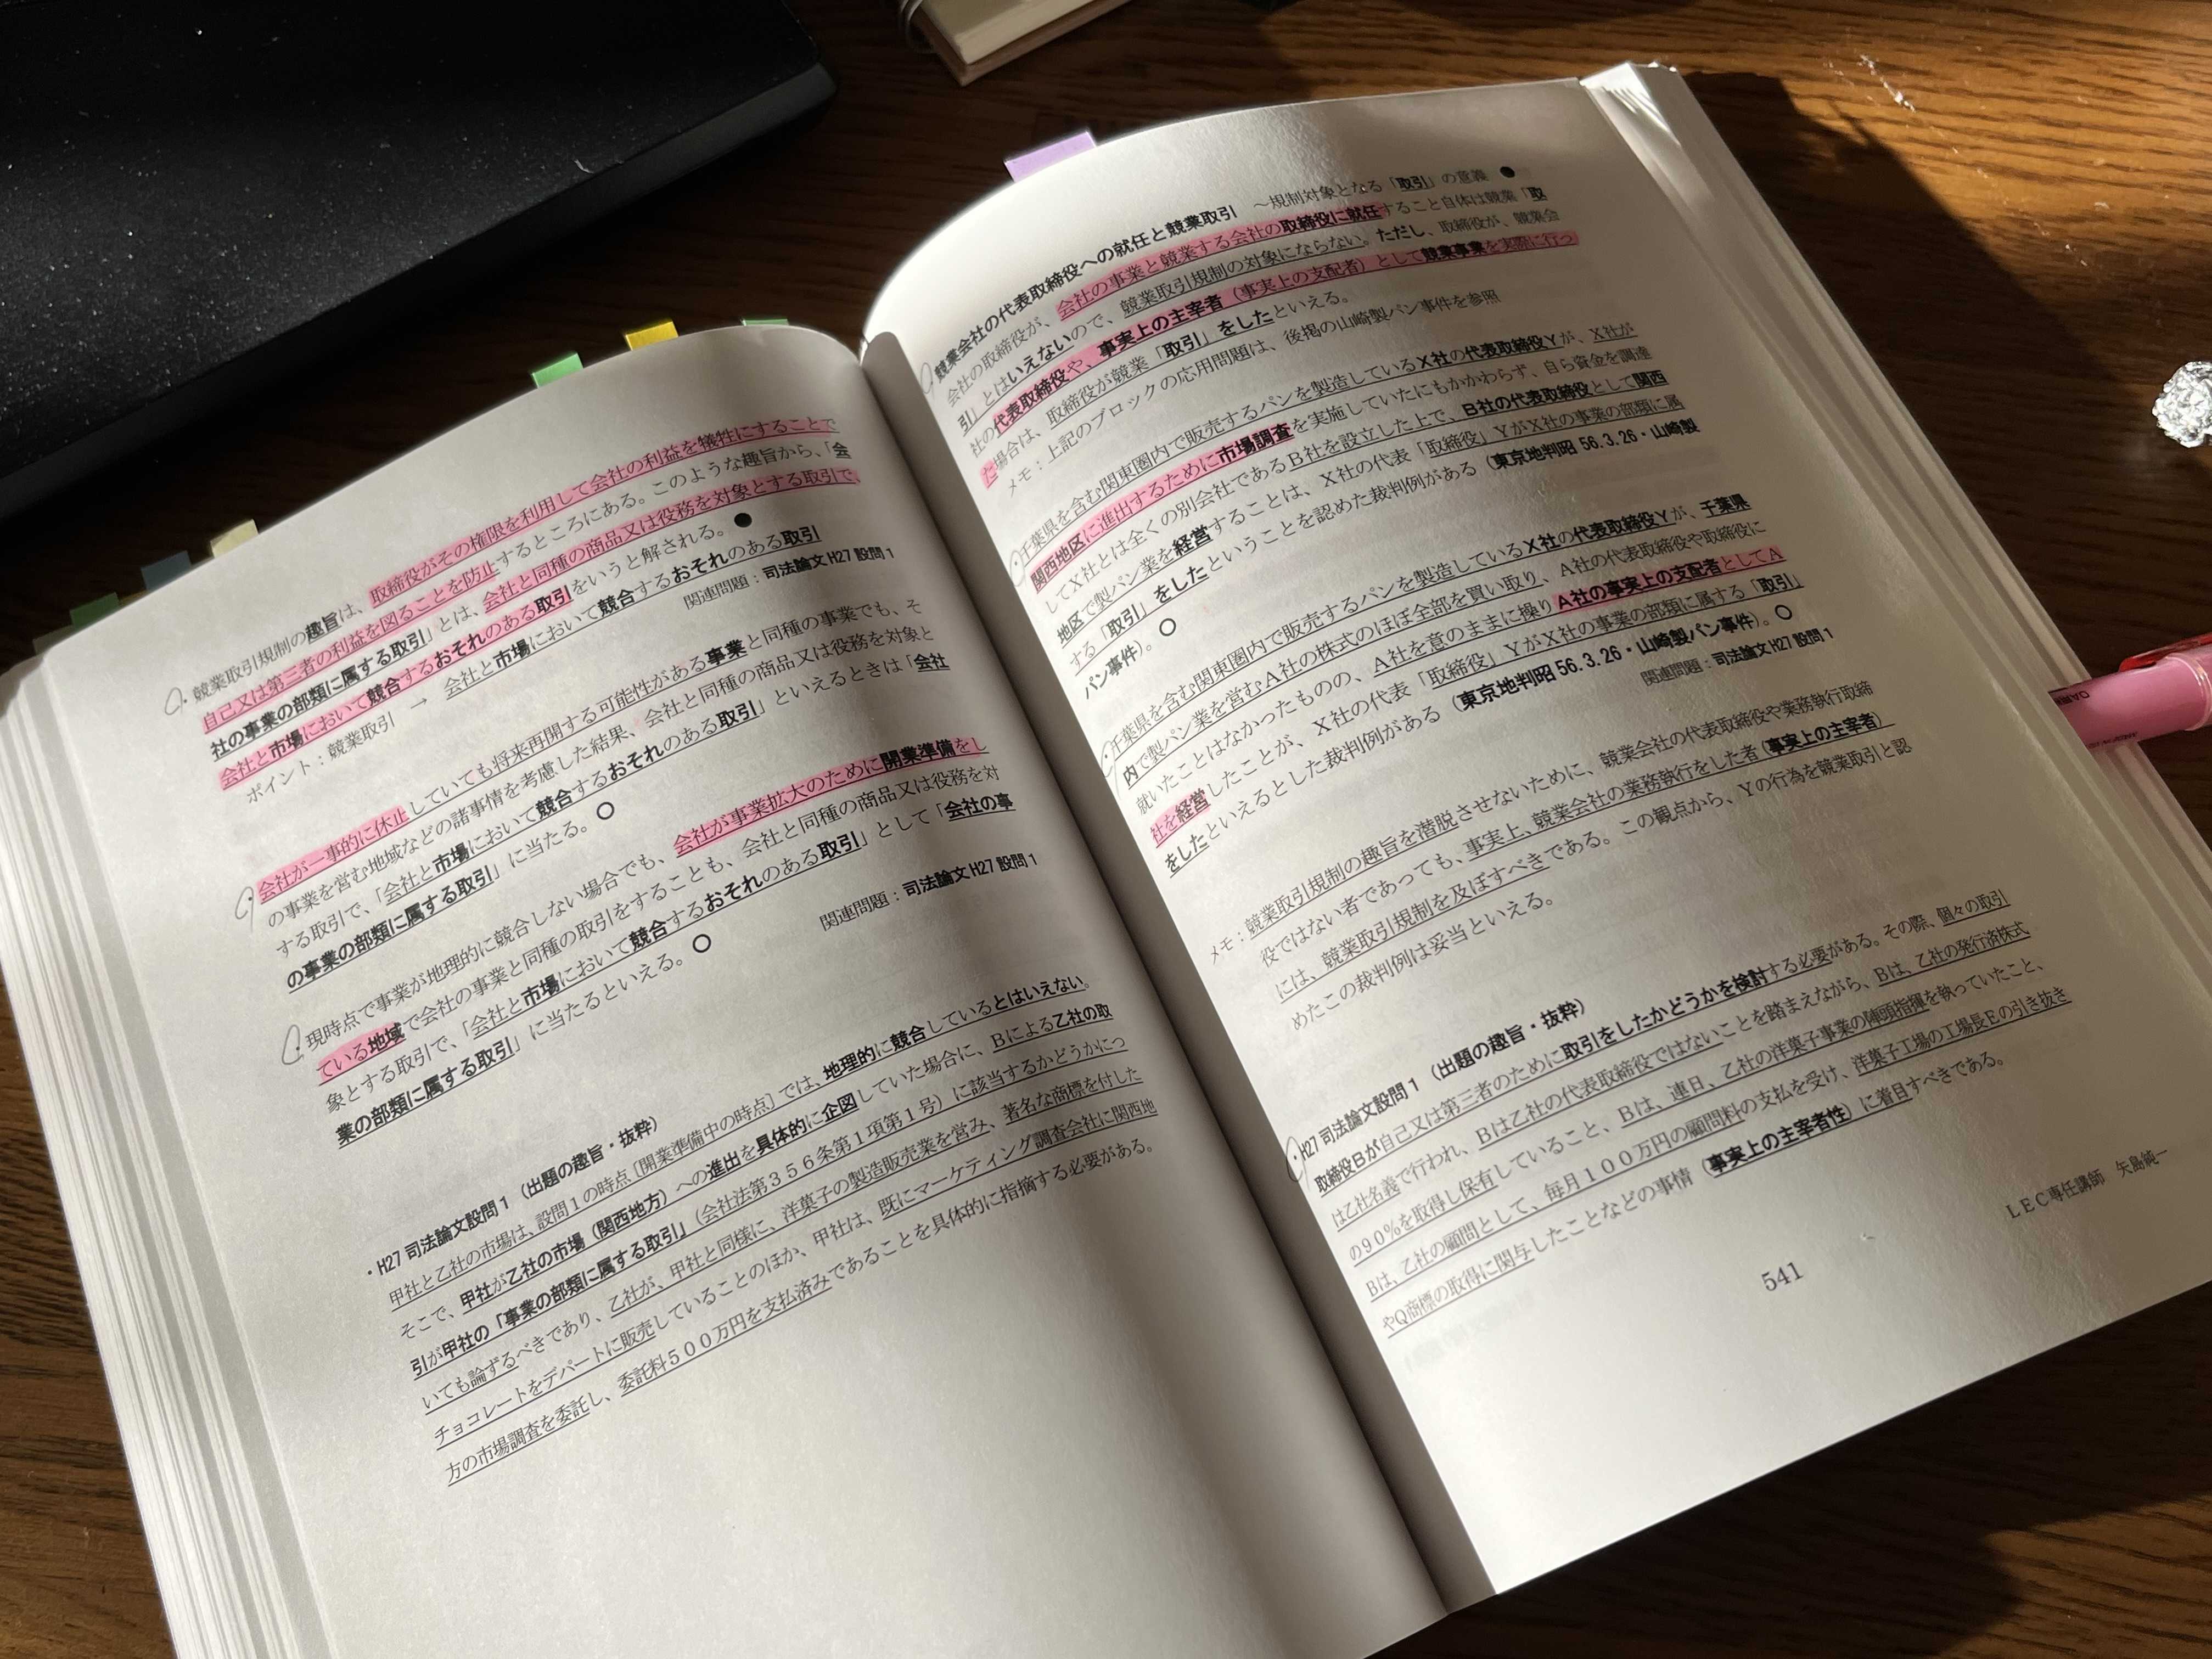 ・競業取引規制の趣旨は、取締役がその権限を利用して会社の利益を犠牲にすることで
自己又は第三者の利益を図ることを防止するところにある。このような趣旨から、「会
社の事業の部類に属する取引」とは、会社と同種の商品又は役務を対象とする取引で、
会社と市場において競合するおそれのある取引をいうと解される。●
ポイント：競業取引 → 会社と市場において競合するおそれのある取引
関連問題：司法論文H27 設問1
・会社が一事的に休止していても将来再開する可能性がある事業と同種の事業でも、そ
の事業を営む地域などの諸事情を考慮した結果、会社と同種の商品又は役務を対象と
する取引で、「会社と市場において競合するおそれのある取引」といえるときは「会社
の事業の部類に属する取引」に当たる。○
・現時点で事業が地理的に競合しない場合でも、会社が事業拡大のために開業準備をし
ている地域で会社の事業と同種の取引をすることも、会社と同種の商品又は役務を対
象とする取引で、「会社と市場において競合するおそれのある取引」として「会社の事
業の部類に属する取引」に当たるといえる。○
関連問題：司法論文H27 設問1
・H27 司法論文設問1（出題の趣旨・抜粋）
甲社と乙社の市場は、設問1の時点［開業準備中の時点］では、地理的に競合しているとはいえない。
そこで、甲社が乙社の市場（関西地方）への進出を具体的に企図していた場合に、Bによる乙社の取
引が甲社の「事業の部類に属する取引」（会社法第356条第1項第1号）に該当するかどうかにつ
いても論ずるべきであり、乙社が、甲社と同様に、洋菓子の製造販売業を営み、著名な商標を付した
チョコレートをデパートに販売していることのほか、甲社は、既にマーケティング調査会社に関西地
方の市場調査を委託し、委託料500万円を支払済みであることを具体的に指摘する必要がある。
・競業会社の代表取締役への就任と競業取引 ～規制対象となる「取引」の意義 ●
会社の取締役が、会社の事業と競業する会社の取締役に就任すること自体は競業「取
引」とはいえないので、競業取引規制の対象にならない。ただし、取締役が、競業会
社の代表取締役や、事実上の主宰者（事実上の支配者）として競業事業を実際に行っ
た場合は、取締役が競業「取引」をしたといえる。
メモ：上記のブロックの応用問題は、後掲の山崎製パン事件を参照
・千葉県を含む関東圏内で販売するパンを製造しているX社の代表取締役Yが、X社が
関西地区に進出するために市場調査を実施していたにもかかわらず、自ら資金を調達
してX社とは全くの別会社であるB社を設立した上で、B社の代表取締役として関西
地区で製パン業を経営することは、X社の代表「取締役」YがX社の事業の部類に属
する「取引」をしたということを認めた裁判例がある（東京地判昭56.3.26・山崎製
パン事件）。○
・千葉県を含む関東圏内で販売するパンを製造しているX社の代表取締役Yが、千葉県
内で製パン業を営むA社の株式のほぼ全部を買い取り、A社の代表取締役や取締役に
就いたことはなかったものの、A社を意のままに操りA社の事実上の支配者としてA
社を経営したことが、X社の代表「取締役」YがX社の事業の部類に属する「取引」
をしたといえるとした裁判例がある（東京地判昭56.3.26・山崎製パン事件）。○
関連問題：司法論文H27 設問1
メモ：競業取引規制の趣旨を潜脱させないために、競業会社の代表取締役や業務執行取締
役ではない者であっても、事実上、競業会社の業務執行をした者（事実上の主宰者）
には、競業取引規制を及ぼすべきである。この観点から、Yの行為を競業取引と認
めたこの裁判例は妥当といえる。
・H27 司法論文設問1（出題の趣旨・抜粋）
取締役Bが自己又は第三者のために取引をしたかどうかを検討する必要がある。その際、個々の取引
は乙社名義で行われ、Bは乙社の代表取締役ではないことを踏まえながら、Bは、乙社の発行済株式
の90％を取得し保有していること、Bは、連日、乙社の洋菓子事業の陣頭指揮を執っていたこと、
Bは、乙社の顧問として、毎月100万円の顧問料の支払を受け、洋菓子工場の工場長Eの引き抜き
やQ商標の取得に関与したことなどの事情（事実上の主宰者性）に着目すべきである。
LEC専任講師 矢島純一
541